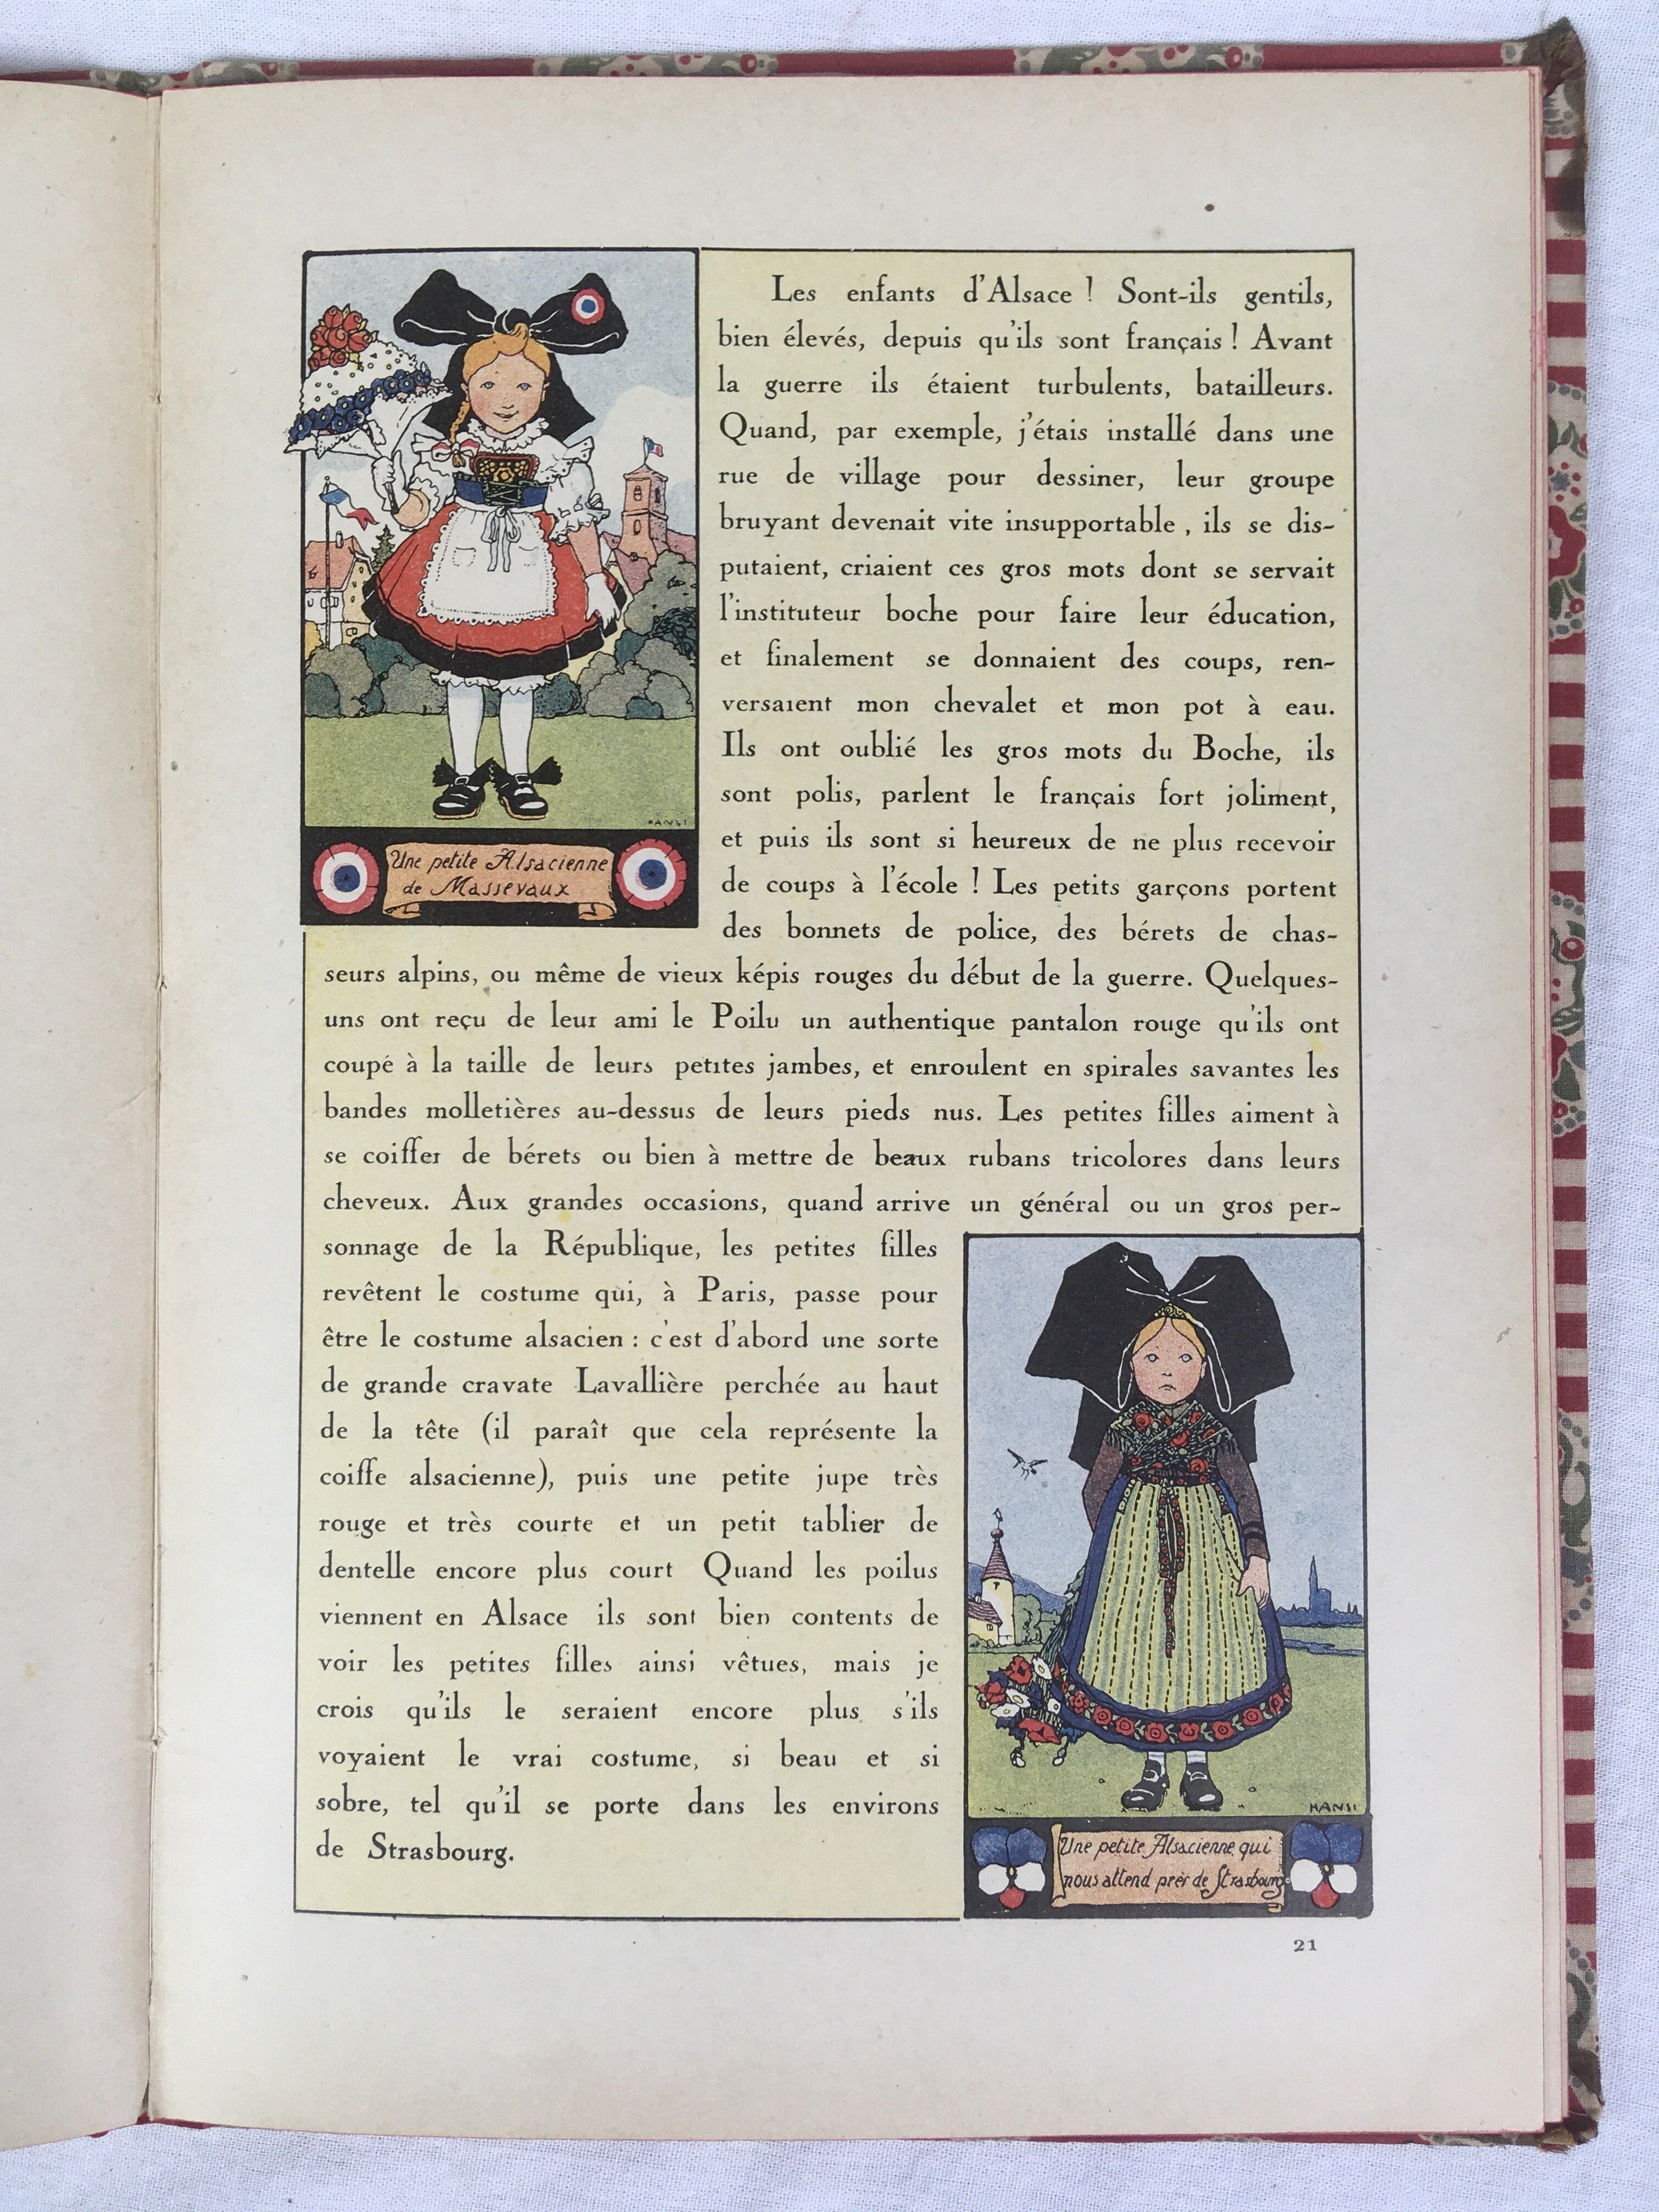 Les enfants d'Alsace ! Sont-ils gentils,
bien élevés, depuis qu'ils sont français ! Avant
la guerre ils étaient turbulents, batailleurs.
Quand, par exemple, j'étais installé dans une
rue de village pour dessiner, leur groupe
bruyant devenait vite insupportable , ils se dis-
putaient, criaient ces gros mots dont se servait
l'instituteur boche pour faire leur éducation,
et finalement se donnaient des coups, ren-
versaient mon chevalet et mon pot à eau.
Ils ont oublié les gros mots du Boche, ils
sont polis, parlent le français fort joliment,
et puis ils sont si heureux de ne plus recevoir
de coups à l'école ! Les petits garçons portent
des bonnets de police, des bérets de chas-
seurs alpins, ou même de vieux képis rouges du début de la guerre. Quelques-
uns ont reçu de leur ami le Poilu un authentique pantalon rouge qu'ils ont
coupé à la taille de leurs petites jambes, et enroulent en spirales savantes les
bandes molletières au-dessus de leurs pieds nus. Les petites filles aiment à
se coiffer de bérets ou bien à mettre de beaux rubans tricolores dans leurs
cheveux. Aux grandes occasions, quand arrive un général ou un gros per-
sonnage de la République, les petites filles
revêtent le costume qui, à Paris, passe pour
être le costume alsacien : c'est d'abord une sorte
de grande cravate Lavallière perchée au haut
de la tête (il paraît que cela représente la
coiffe alsacienne), puis une petite jupe très
rouge et très courte et un petit tablier de
dentelle encore plus court Quand les poilus
viennent en Alsace ils sont bien contents de
voir les petites filles ainsi vêtues, mais je
crois qu'ils le seraient encore plus s'ils
voyaient le vrai costume, si beau et si
sobre, tel qu'il se porte dans les environs
de Strasbourg.
HANSI
Une petite Alsacienne
de Massevaux
HANSI
Une petite Alsacienne qui
nous attend près de Strasbourg
21